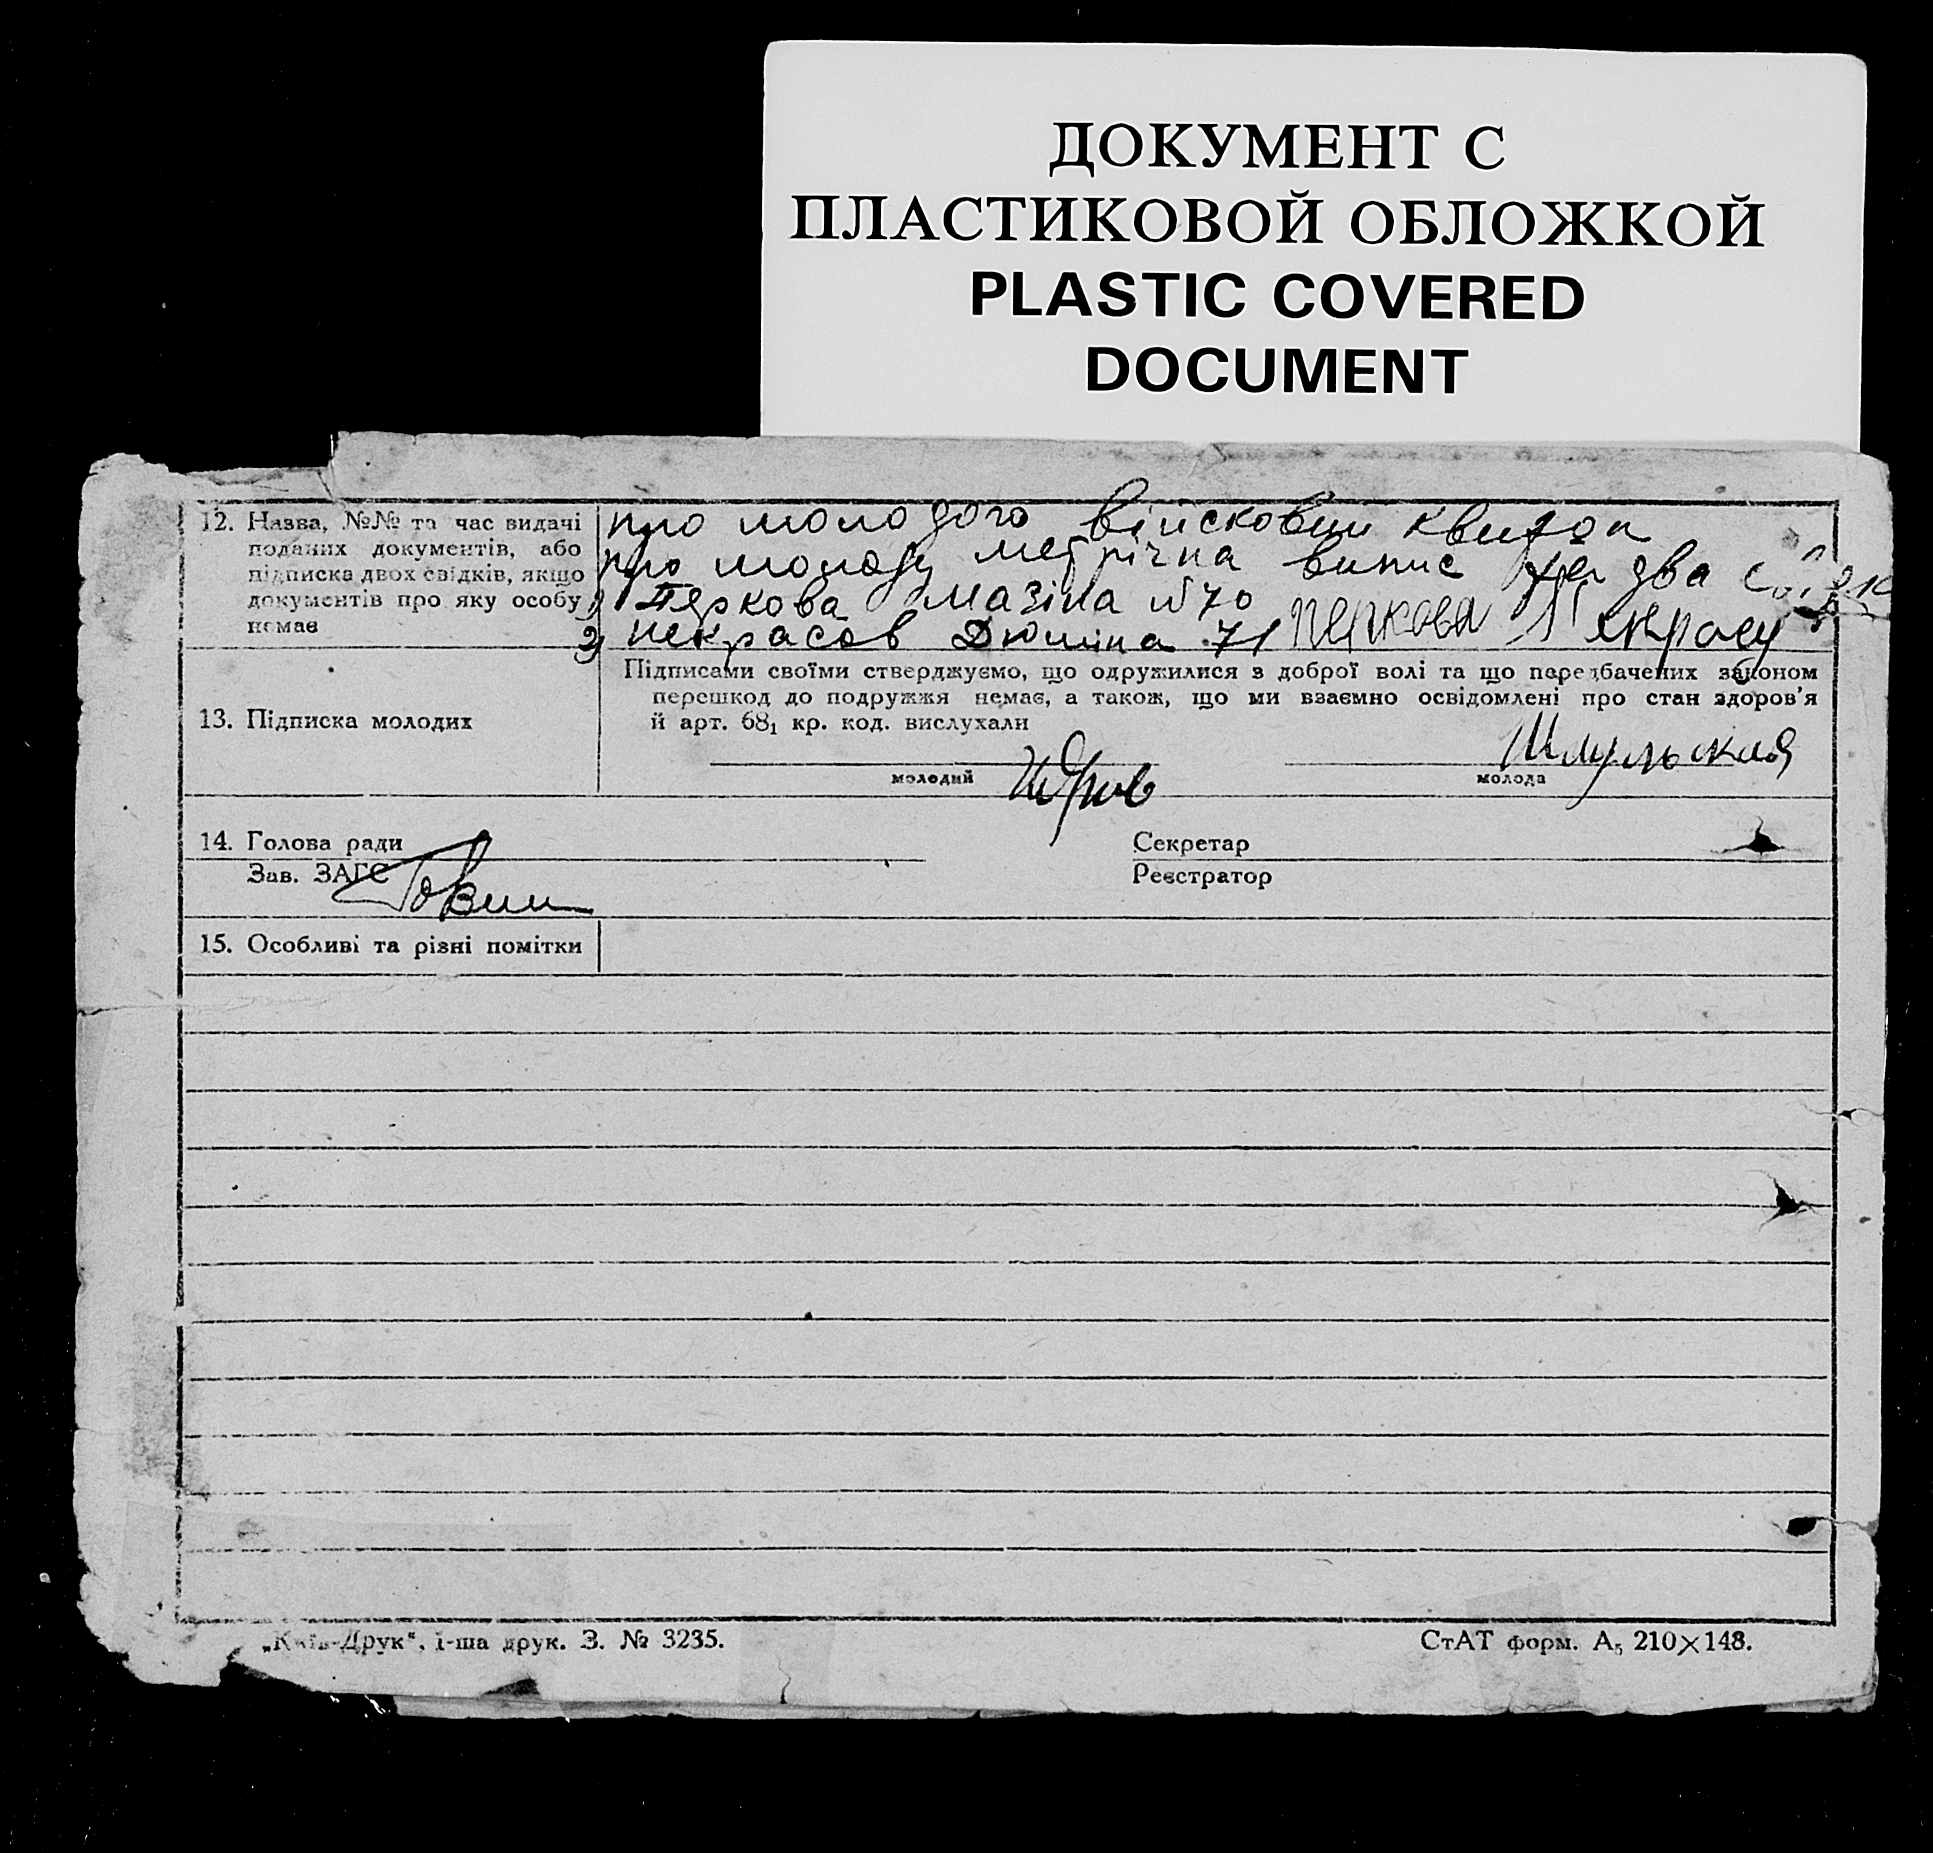 ДОКУМЕНТ С
ПЛАСТИКОВОЙ ОБЛОЖКОЙ
PLASTIC COVERED
DOCUMENT
12. Назва, №№ та час видачі
поданих документів, або
підписка двох свідків, якщо
документів про яку особу
немає
про молодого військовий квиток
про молоду метрічна випис два
1) Пяркова Мазіна №70
2) Некрасов Дюміна 71
Підписами своїми стверджуємо, що одружилися з доброї волі та що передбачених законом
перешкод до подружжя немає, а також, що ми взаємно освідомлені про стан здоров'я
й арт. 68₁ кр. код. вислухали
13. Підписка молодих
Шмульская
молодий
молода
14. Голова ради
Секретар
Зав. ЗАГС
Реєстратор
15. Особливі та різні помітки
„Київ-Друк“, 1-ша друк. З. № 3235.
СтАТ форм. А₅ 210×148.